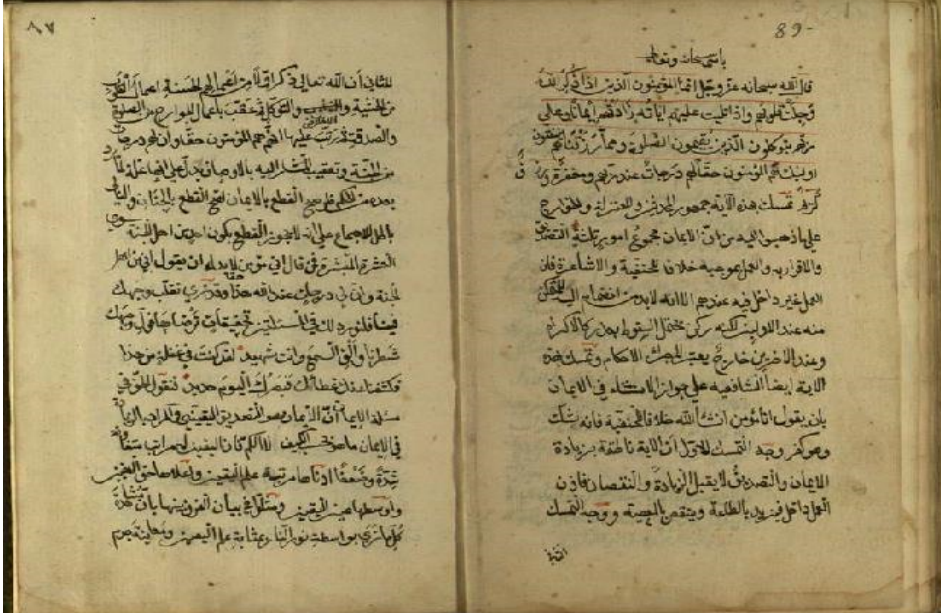 89
باسمه سبحانه وتعالى
قال الله سبحانه عز وجل انما المؤمنون الذين اذا ذكر الله
وجلت قلوبهم واذا تليت عليهم اياته زادتهم ايمانا وعلى
ربهم يتوكلون الذين يقيمون الصلوة ومما رزقناهم ينفقون
اولئك هم المؤمنون حقا لهم درجات عند ربهم ومغفرة ورزق
كريم تمسك بهذه الآية جمهور المحدثين والمعتزلة والخوارج
على ما ذهبوا اليه من ان الايمان مجموع امور ثلثة التصديق
والاقرار به والعمل بموجبه خلافا للحنفية والاشاعرة فان
العمل غير داخل فيه عندهم الا انه لابد من انضمام اليه للتمكن
منه عند الاولين لكنه ركن محتمل السقوط بعذر كالاكراه
وعند الاخرين خارج يعتبر لاجراء الاحكام وتمسك بهذه
الاية ايضا الشافعية على جواز الاستثناء في الايمان
بان يقول انا مؤمن ان شاء الله خلافا للحنفية فانه شك
وهو كفر وجه التمسك للاول ان الاية ناطقة بزيادة
الايمان والتصديق لا يقبل الزيادة والنقصان فاذن
العمل داخل فيزيد بالطاعة وينقص بالمعصية ووجه التمسك
للثاني ان الله تعالى ذكر اولا من اعمالهم الحسنة اعمال القلوب
من الخشية والتوكل ثم عقب باعمال الجوارح من الصلوة
والصدقة ثم رتب عليها انهم هم المؤمنون حقا وان لهم درجات
من الجنة وتعقيب المشار اليه بالاوصاف يدل على
بعده من فلو صح القطع بالايمان لصح القطع بالجنة
بالاجماع على انه لا يجوز القطع بكون احد من اهل الجنة سوى
العشرة المبشرة فمن قال اني مؤمن لابد له ان يقول اني من اهل
الجنة وان لي درجات عند الله حقا وقد نرى تقلب وجهك
في السماء فلنولينك قبلة ترضاها فول وجهك
شطره والق السمع وانت شهيد لقد كنت في غفلة من هذا
فكشفنا عنك غطاءك فبصرك اليوم حديد فنقول الحق في
مسئلة الايمان ان الايمان هو التصديق اليقيني
في الايمان بحسب الكيف لا الكم فان لليقين مراتب متفاوتة
شدة وضعفا ادناها مرتبة علم اليقين واعلاها حق اليقين
واوسطها عين اليقين ومثلوا في بيان الفرق بينها بان مشاهدة
كل ما يرى بواسطة نور النار بمثابة علم اليقين ومعاينة جرم